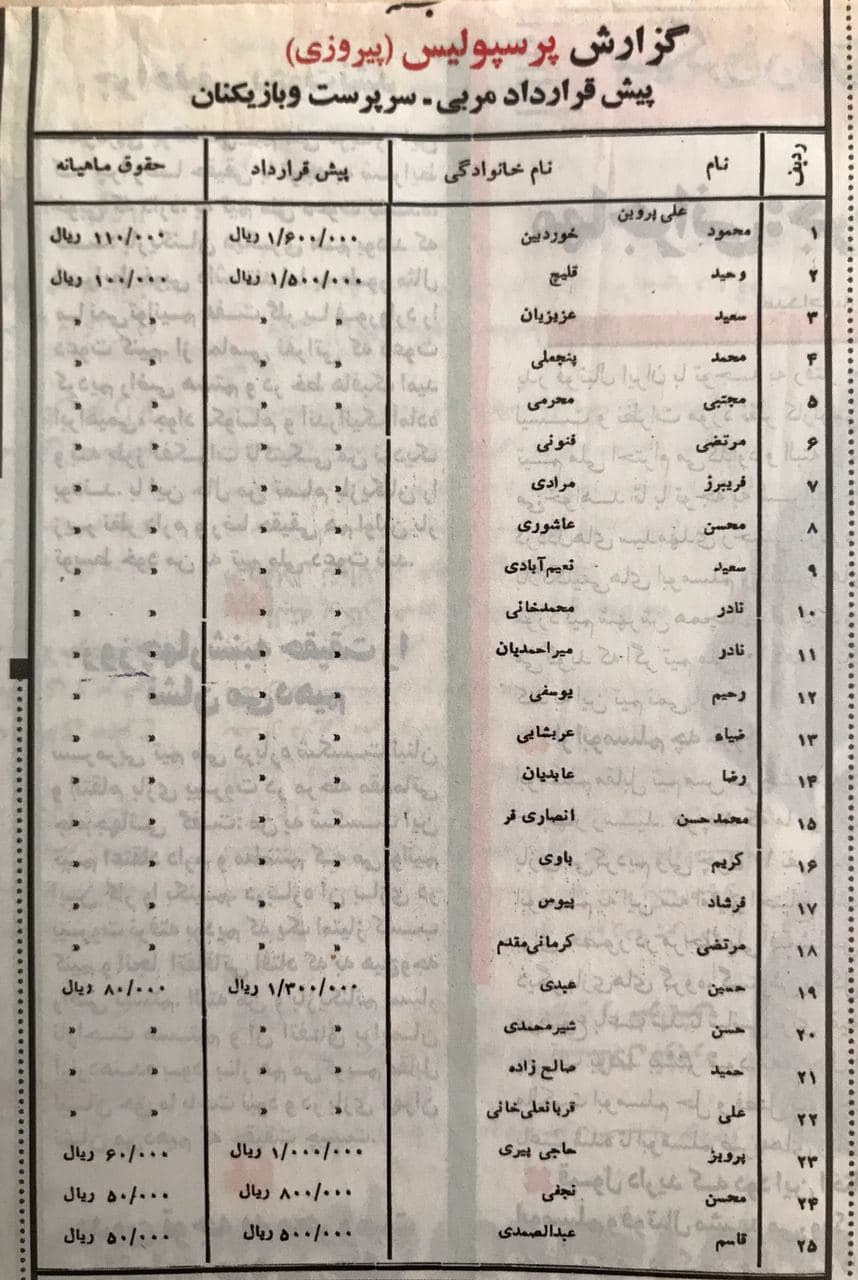 گزارش پرسپولیس (پیروزی)
پیش قرارداد مربی - سرپرست وبازیکنان
ردیف نام نام خانوادگی پیش قرارداد حقوق ماهیانه
علی پروین
۱ محمود خوردبین ۱/۶۰۰/۰۰۰ ریال ۱۱۰/۰۰۰ ریال
۲ وحید قلیچ ۱/۵۰۰/۰۰۰ ریال ۱۰۰/۰۰۰ ریال
۳ سعید عزیزیان » » » »
۴ محمد پنجعلی » » » »
۵ مجتبی محرمی » » » »
۶ مرتضی فنونی » » » »
۷ فریبرز مرادی » » » »
۸ محسن عاشوری » » » »
۹ سعید نعیم‌آبادی » » » »
۱۰ نادر محمدخانی » » » »
۱۱ نادر میراحمدیان » » » »
۱۲ رحیم یوسفی » » » »
۱۳ ضیاء عربشایی » » » »
۱۴ رضا عابدیان » » » »
۱۵ محمدحسن انصاری فر » » » »
۱۶ کریم باوی » » » »
۱۷ فرشاد پیوس » » » »
۱۸ مرتضی کرمانی‌مقدم » » » »
۱۹ حسین عبدی ۱/۳۰۰/۰۰۰ ریال ۸۰/۰۰۰ ریال
۲۰ حسن شیرمحمدی » » » »
۲۱ حمید صالح زاده » » » »
۲۲ علی قربانعلی‌خانی » » » »
۲۳ پرویز حاجی پیری ۱/۰۰۰/۰۰۰ ریال ۶۰/۰۰۰ ریال
۲۴ محسن نجفی ۸۰۰/۰۰۰ ریال ۵۰/۰۰۰ ریال
۲۵ قاسم عبدالصمدی ۵۰۰/۰۰۰ ریال ۵۰/۰۰۰ ریال